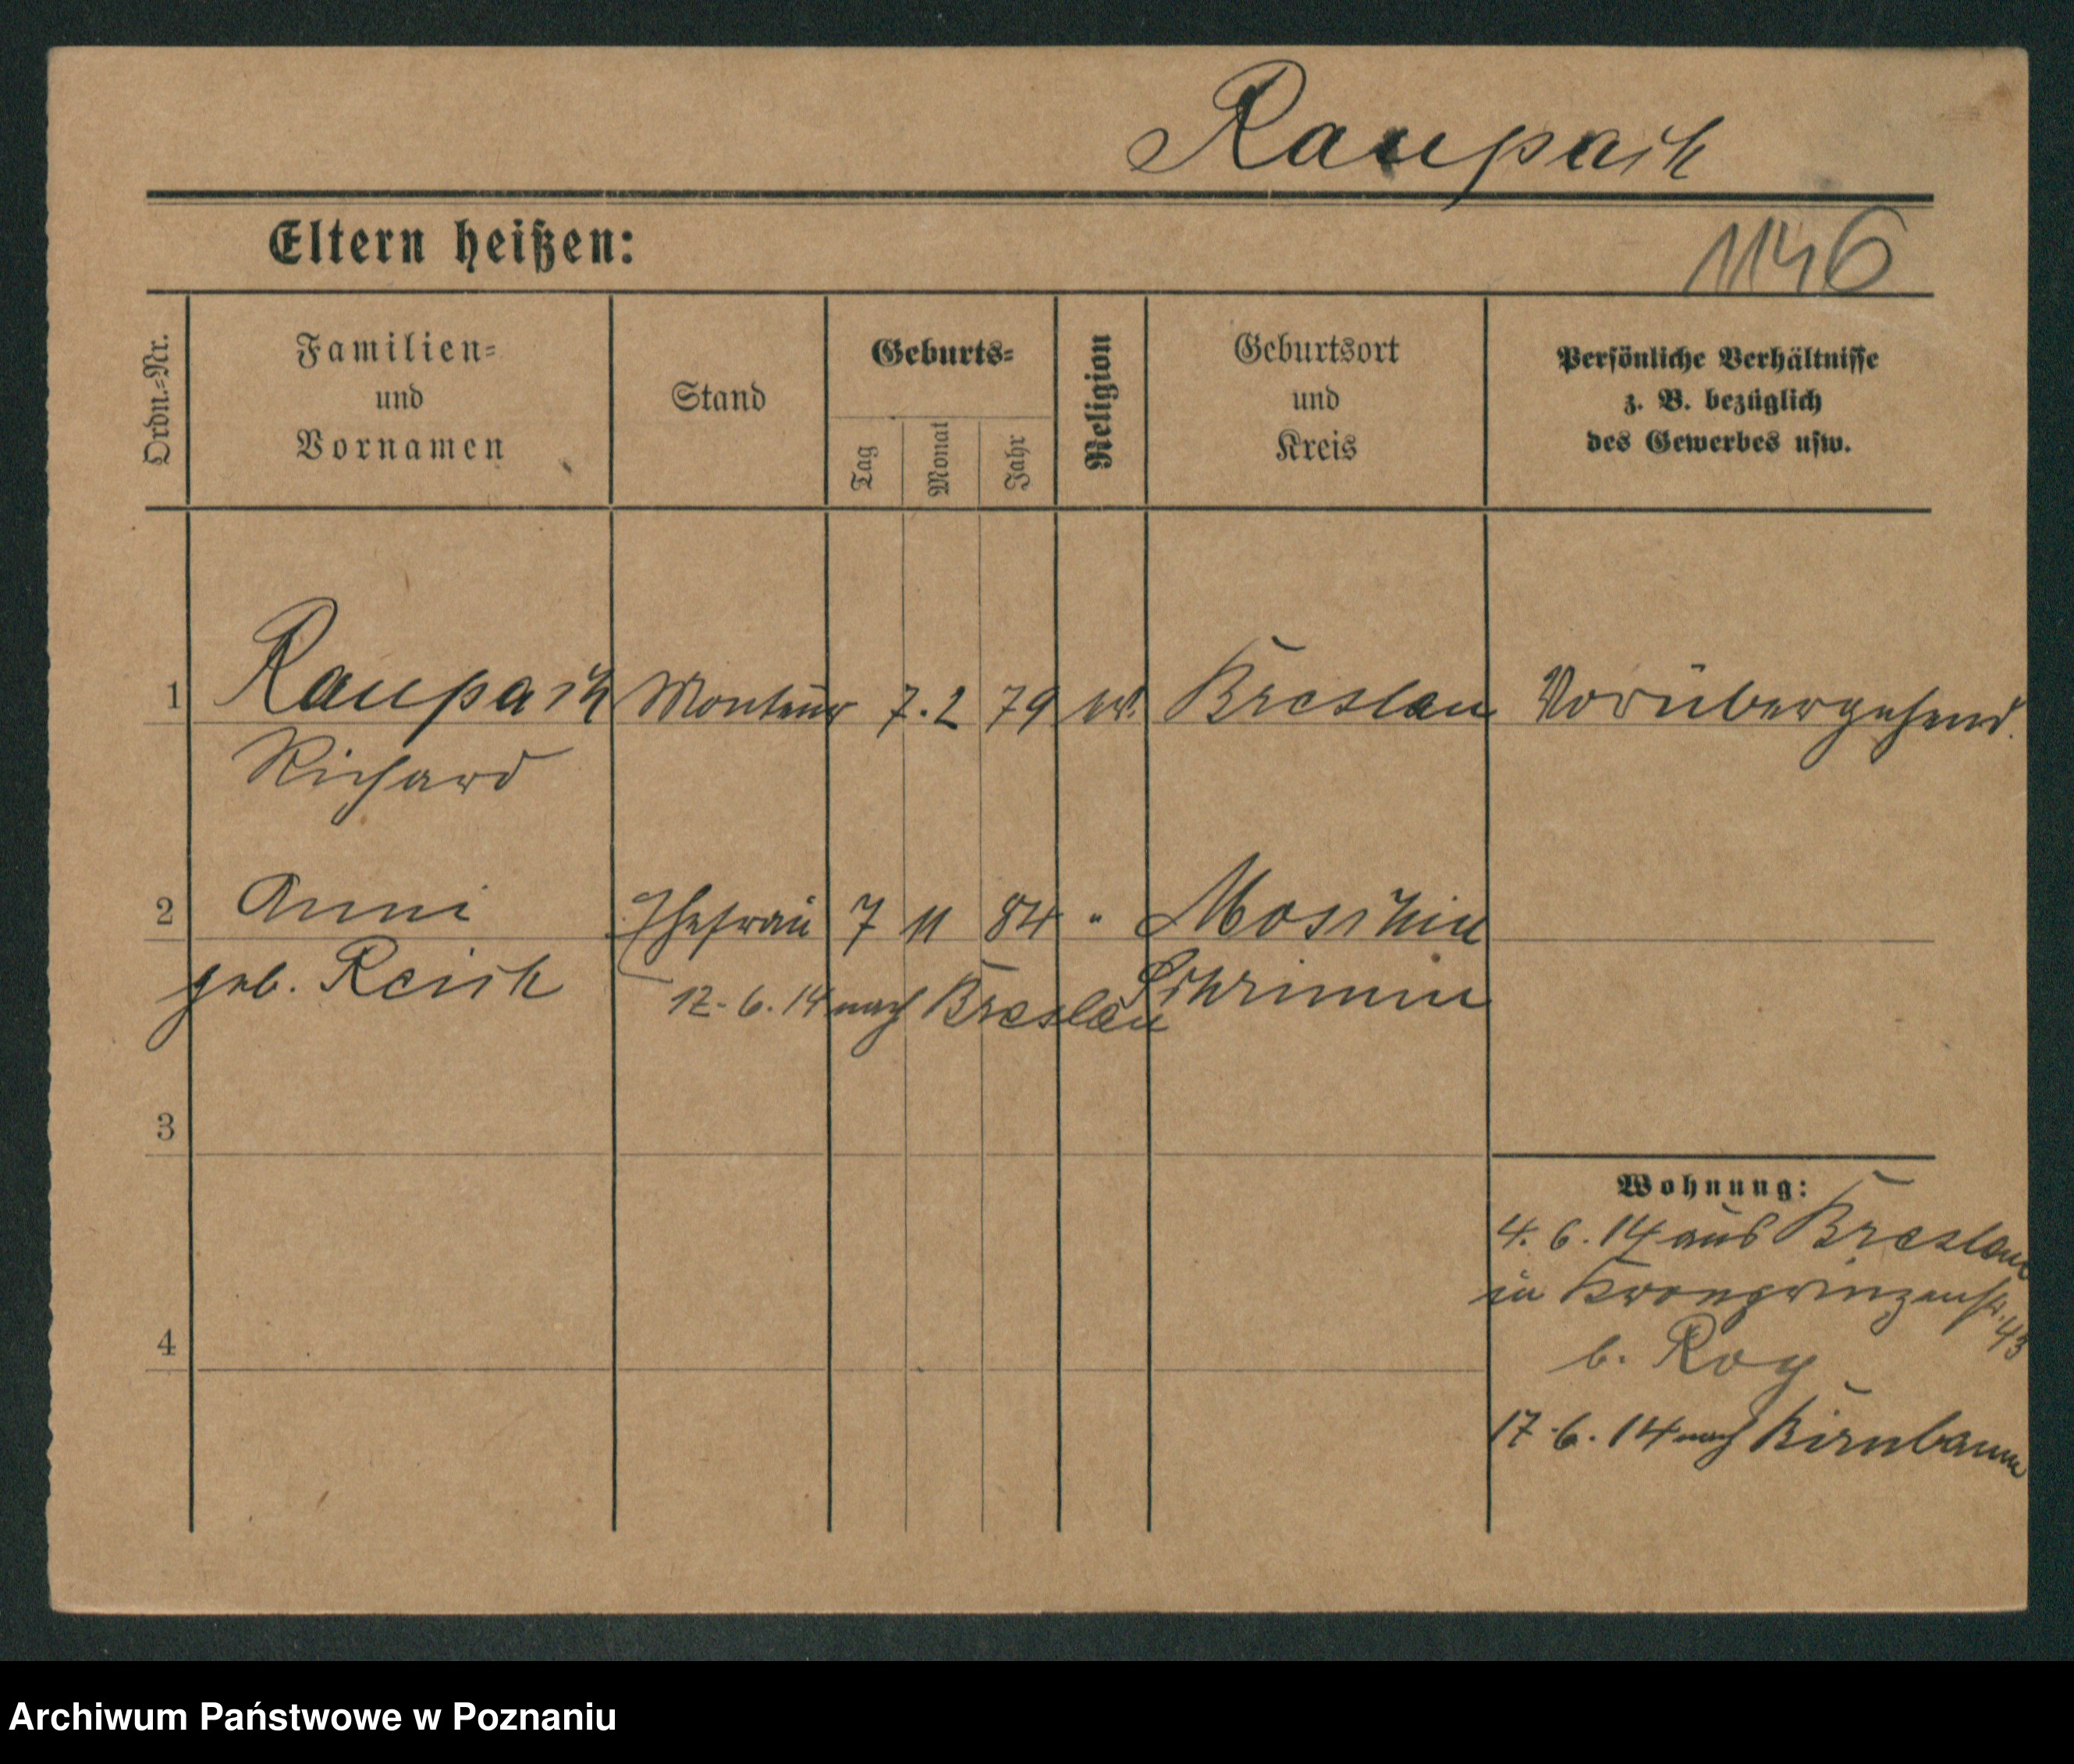 Raupach
Eltern heißen:
1146
Ordn.=Nr.
Familien=
und
Vornamen
Stand
Geburts=
Tag
Monat
Jahr
Religion
Geburtsort
und
Kreis
Persönliche Verhältnisse
z. B. bezüglich
des Gewerbes usw.
1 Raupach Monteur 7. 2 79 Breslau Vorübergehend.
Richard
2 Anni Ehefrau 7 11 84 " Moschin
geb. Reich Schrimm
12. 6. 14 nach Breslau
3
Wohnung:
4. 6. 14 aus Breslau
in Kronprinzenstr. 43
4
b. Roy
17. 6. 14 nach Birnbaum
Archiwum Państwowe w Poznaniu